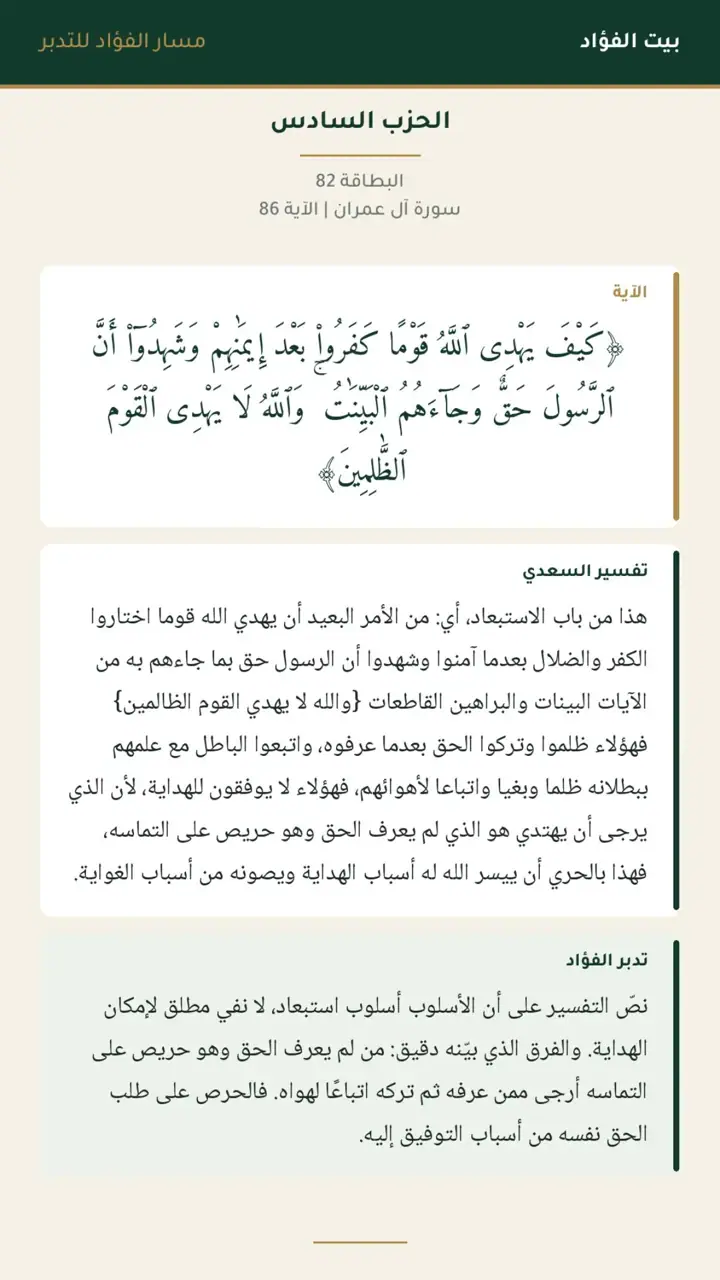 بيت الفؤاد
مسار الفؤاد للتدبر
الحزب السادس
البطاقة 82
سورة آل عمران | الآية 86
الآية
﴿كَيْفَ يَهْدِى ٱللَّهُ قَوْمًا كَفَرُوا۟ بَعْدَ إِيمَـٰنِهِمْ وَشَهِدُوٓا۟ أَنَّ
ٱلرَّسُولَ حَقٌّ وَجَآءَهُمُ ٱلْبَيِّنَـٰتُ ۚ وَٱللَّهُ لَا يَهْدِى ٱلْقَوْمَ
ٱلظَّـٰلِمِينَ﴾
تفسير السعدي
هذا من باب الاستبعاد، أي: من الأمر البعيد أن يهدي الله قوما اختاروا
الكفر والضلال بعدما آمنوا وشهدوا أن الرسول حق بما جاءهم به من
الآيات البينات والبراهين القاطعات {والله لا يهدي القوم الظالمين}
فهؤلاء ظلموا وتركوا الحق بعدما عرفوه، واتبعوا الباطل مع علمهم
ببطلانه ظلما وبغيا واتباعا لأهوائهم، فهؤلاء لا يوفقون للهداية، لأن الذي
يرجى أن يهتدي هو الذي لم يعرف الحق وهو حريص على التماسه،
فهذا بالحري أن ييسر الله له أسباب الهداية ويصونه من أسباب الغواية.
تدبر الفؤاد
نصّ التفسير على أن الأسلوب أسلوب استبعاد، لا نفي مطلق لإمكان
الهداية. والفرق الذي بيّنه دقيق: من لم يعرف الحق وهو حريص على
التماسه أرجى ممن عرفه ثم تركه اتباعًا لهواه. فالحرص على طلب
الحق نفسه من أسباب التوفيق إليه.